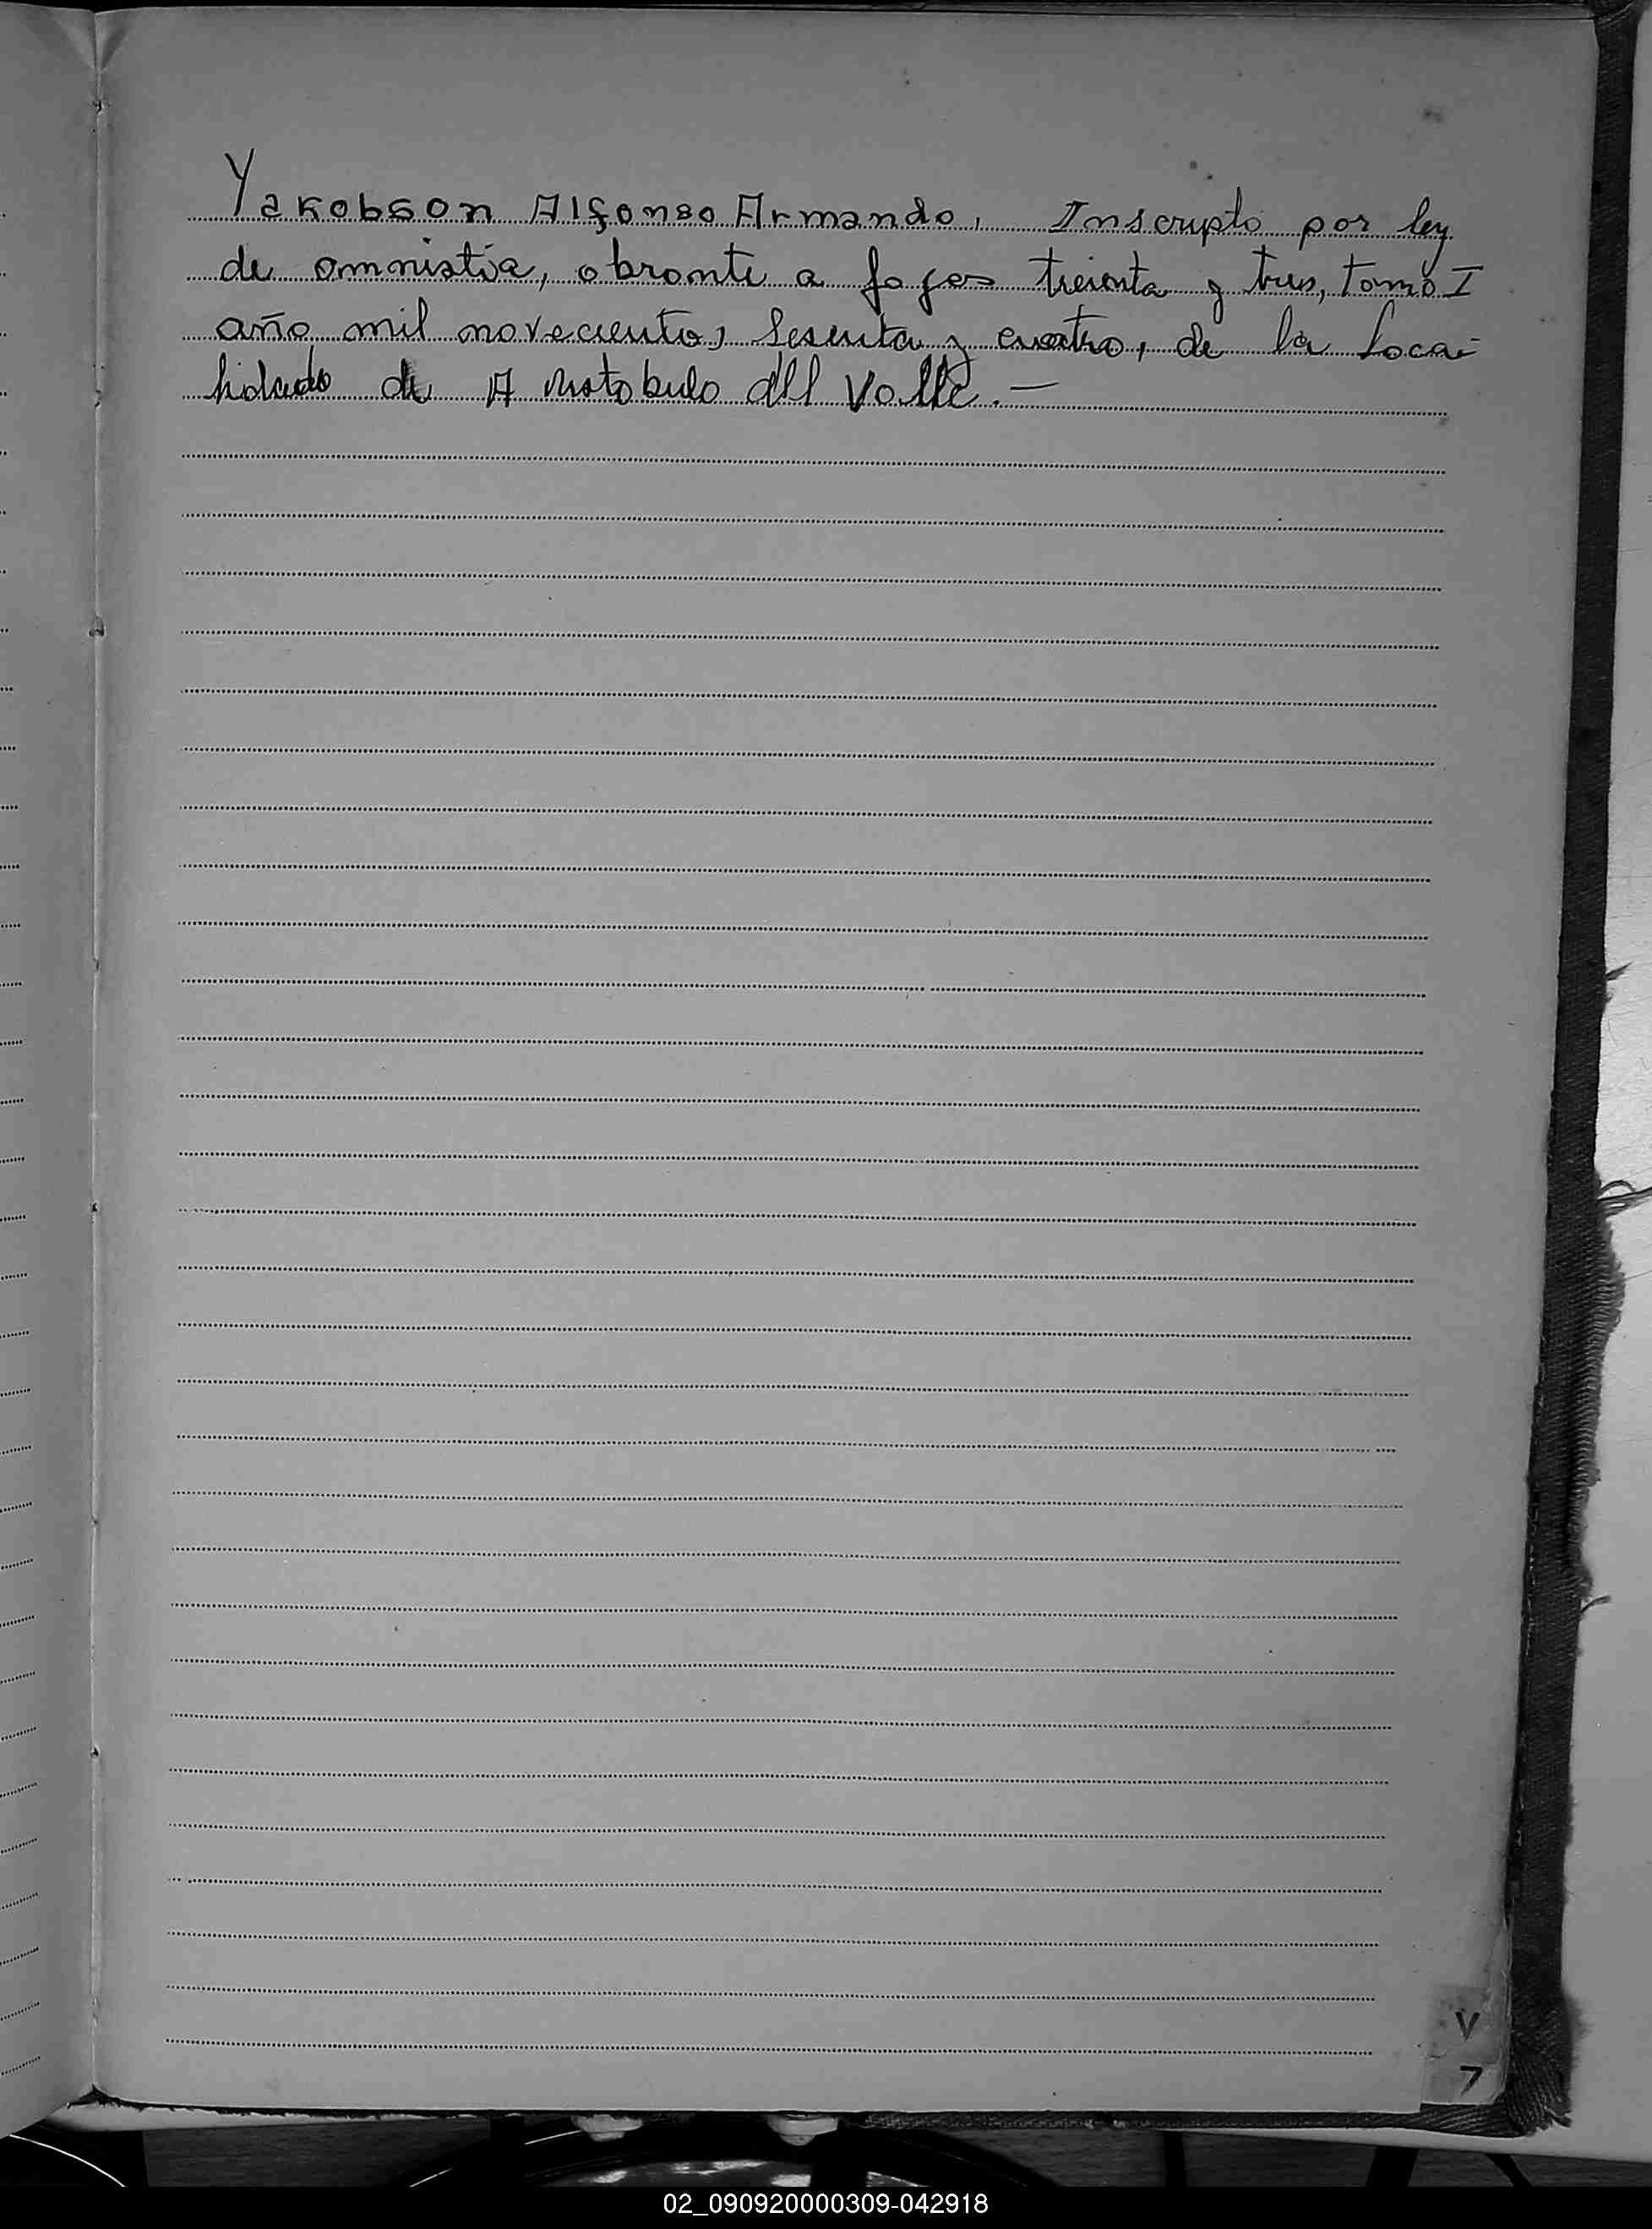 Yakobson Alfonso Armando, Inscripto por ley
de amnistia, obrante a fojas treinta y tres, tomo I
año mil novecientos sesenta y cuatro, de la Loca-
lidad de Aristobulo del Valle. —
V
7
02_090920000309-042918